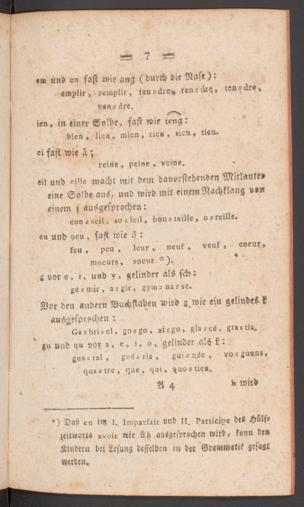 = 7 =
em und en fast wie ang (durch die Nase):
emplir, remplir, ten=dre, ren=dre, ten=dre,
ven=dre.
ien, in einer Sylbe, fast wie ieng:
bien, lien, mien, rien, sien, tien.
ei fast wie ä;
reine, peine, veine.
eil und eille macht mit dem davorstehenden Mitlauter
eine Sylbe aus, und wird mit einem Nachklang von
einem j ausgesprochen:
con=seil, so=leil, bou=teille, o=reille.
eu und oeu, fast wie ö:
feu, peu, leur, neuf, veuf, coeur,
moeurs, soeur *).
g vor e, i, und y, gelinder als sch:
ge=mir, a=gir, gym=na=se.
Vor den andern Buchstaben wird g wie ein gelindes k
ausgesprochen:
Ga=bri=el, go=go, ai=gu, gla=cé, gra=tis.
gu und qu vor a, e, i, o, gelinder als k:
gué=ri=r, gui=née, vo=guons,
qua=tre, que, qui, quo=tien.
A 4 h wird
*) Daß eu im I. Imparfait und II. Participe des Hülfs=
zeitworts avoir wie üh ausgesprochen wird, kann den
Kindern bei Lesung desselben in der Grammatik gesagt
werden.